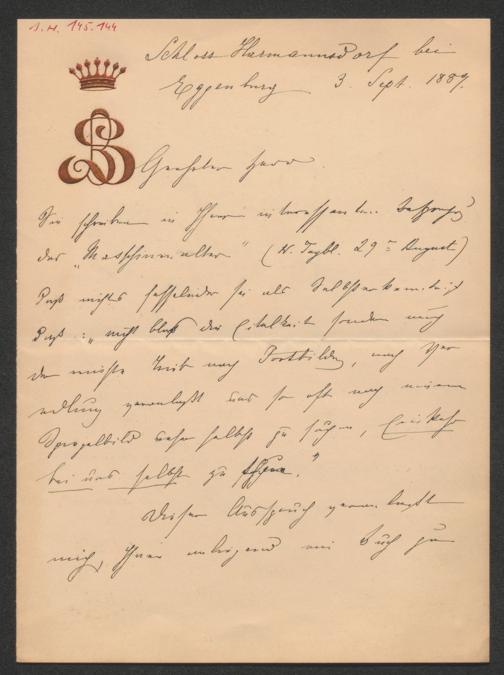 J. N. 145.144
Schloss Harmannsdorf bei
Eggenburg 3. Sept. 1889.
BS
Geehrter Herr
Sie schreiben in Ihrer interessanten Besprechg
des "Maschinenalter" (N. Tagbl. 29te August)
daß nichts fesselnder sei als Selbsterkenntniß
daß: "nicht bloß die Eitelkeit sondern auch
der Trieb nach Fortbildung, nach Ver
edlung veranlaßt uns so oft nach einem
Spiegelbild unser selbst zu suchen, Einkehr
bei uns selbst zu "
Dieser Ausspruch veranlaßt
mich, Ihnen anliegend ein Buch zu